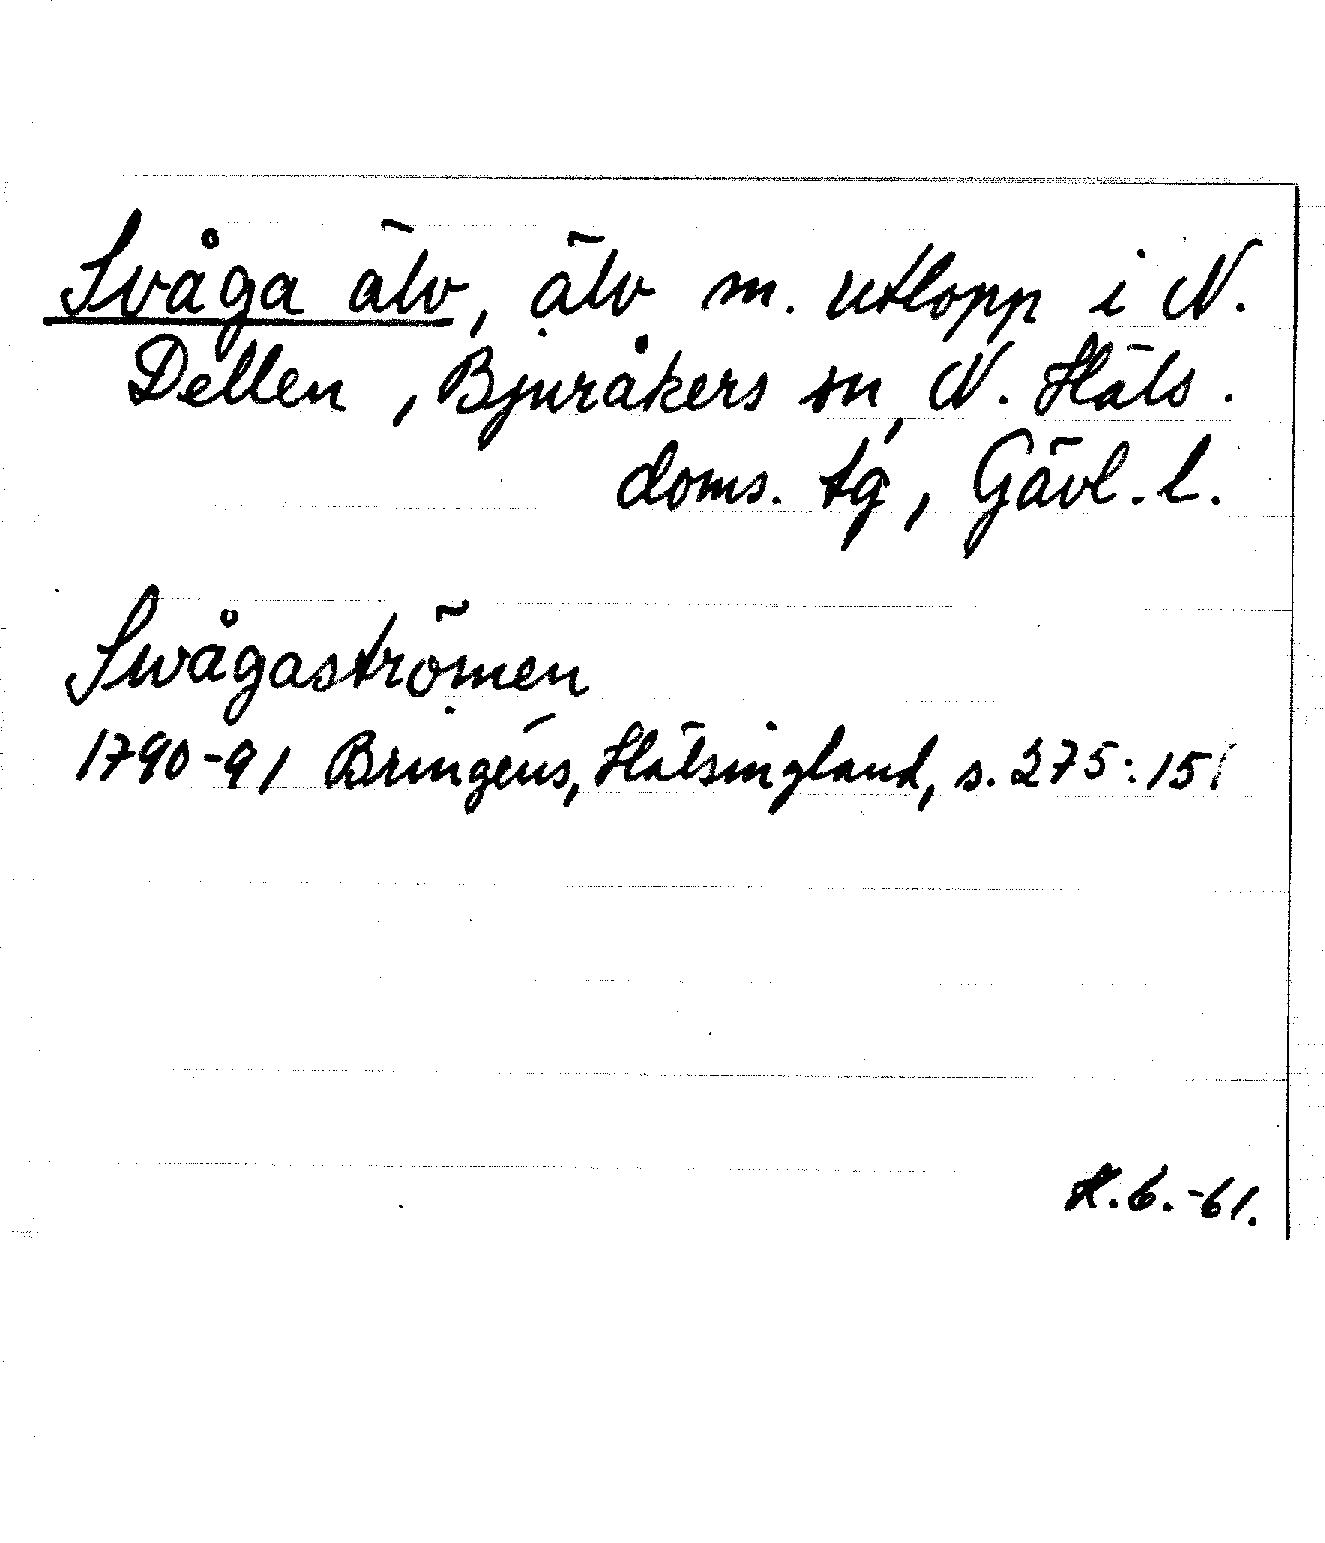 Svåga älv, älv m. utlopp i N.
Dellen, Bjuråkers sn, N. Häls.
doms. tg, Gävl. l.
Swågaströmen
1790-91 Bringéus, Hälsingland, s. 275:151
H.6.-61.